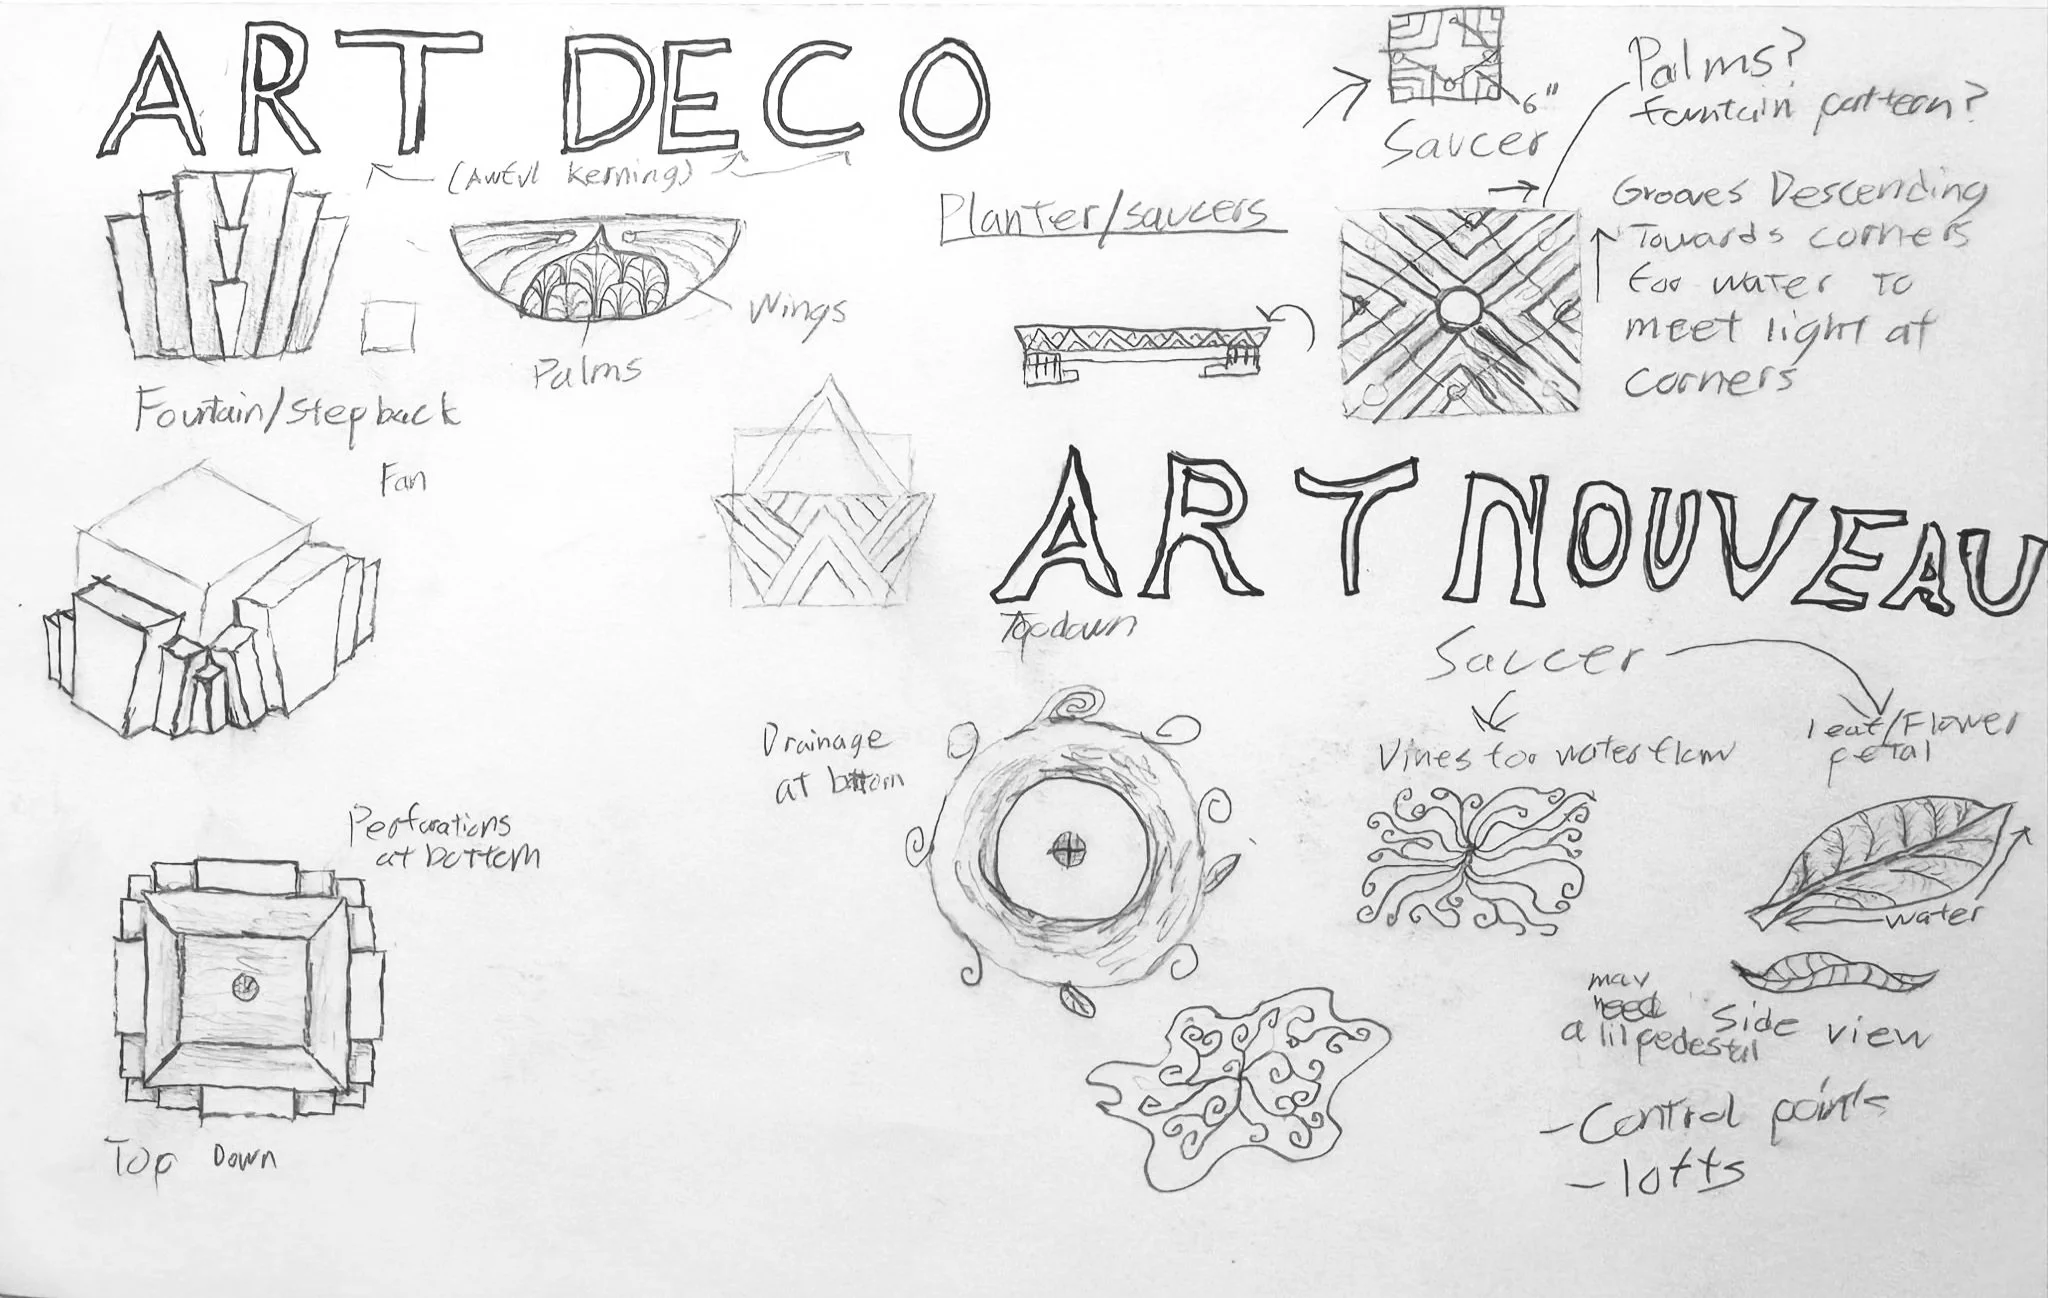 ART DECO
(Awful kerning)
Fountain/stepback
Fan
Palms
Wings
Planter/saucers
6"
Saucer
Palms?
fountain pattern?
Grooves Descending
Towards corners
for water to
meet light at
corners
Perforations
at bottom
Top Down
ART NOUVEAU
Topdown
Drainage
at bottom
Saucer
Vines for water flow
leaf/Flower
petal
water
may
need
a lil pedestal
Side view
- Control points
- lofts